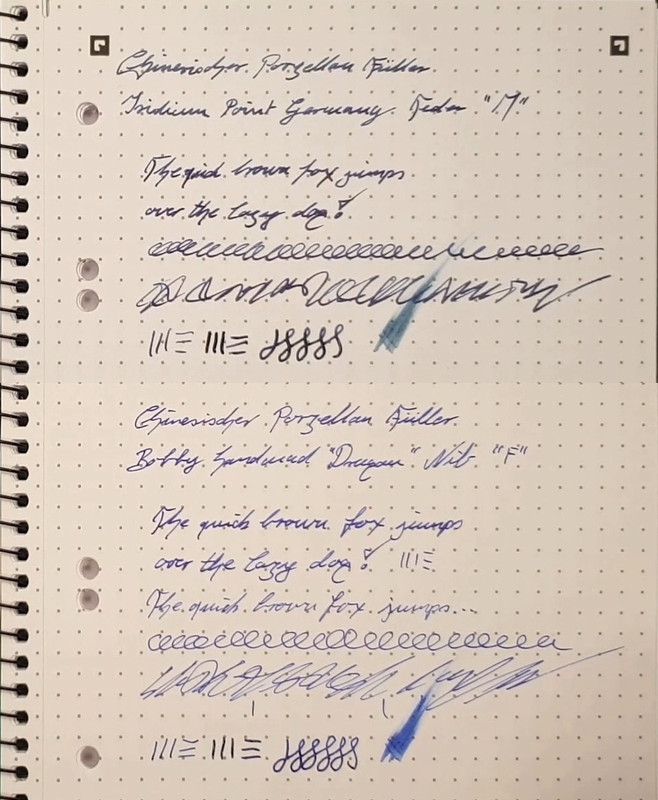 Chinesischer Porzellan Füller.
Iridium Point Germany. Feder "M"
The quick brown fox jumps
over the lazy dog!
Chinesischer Porzellan Füller.
Bobby handmad "Dragon" Nib "F"
The quick brown fox jumps
over the lazy dog!
The quick brown fox jumps...